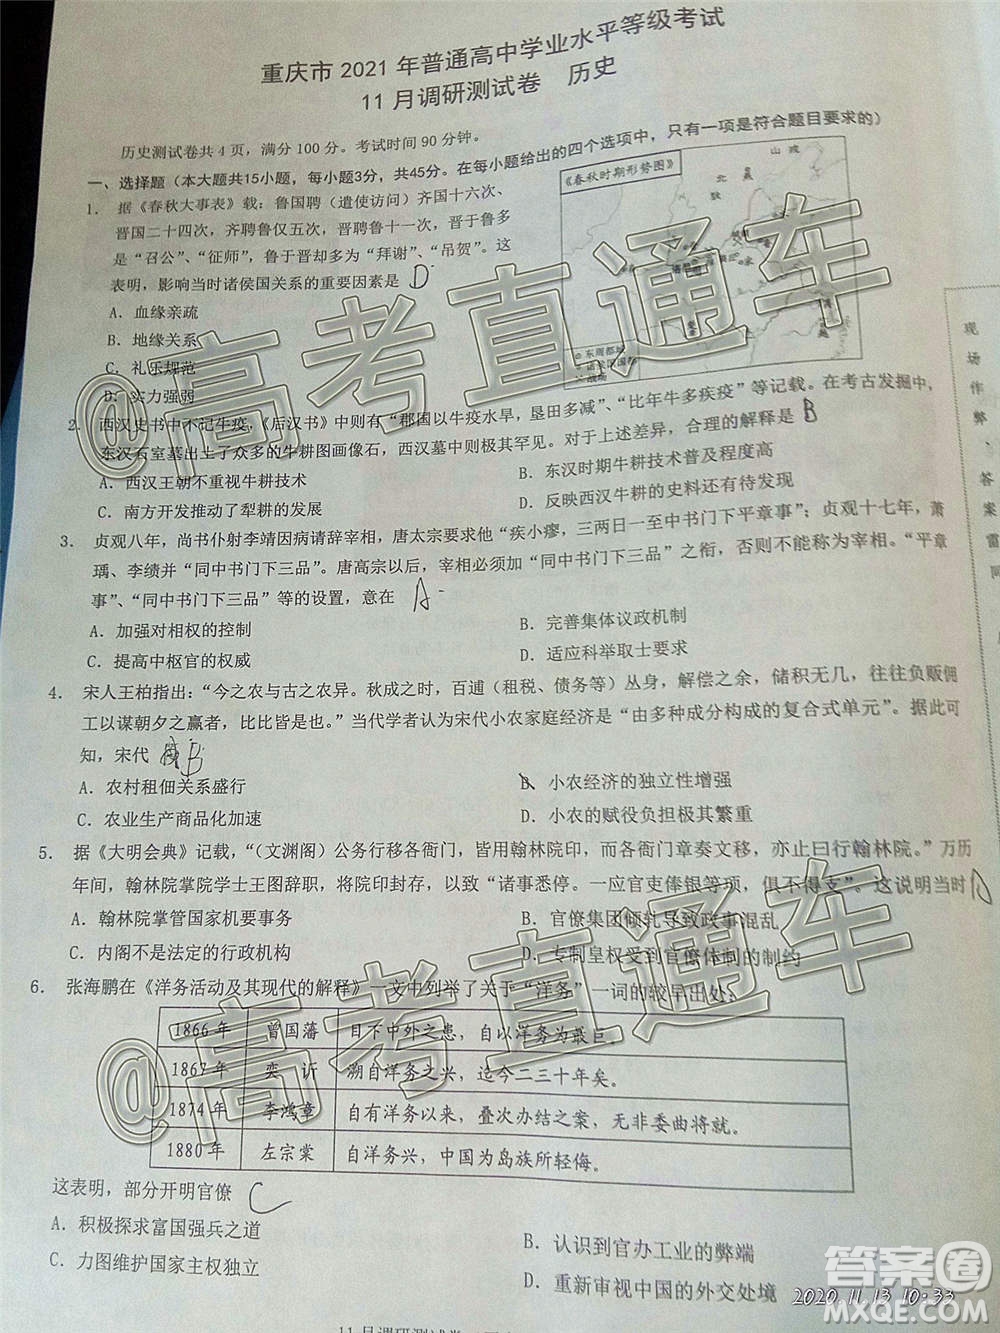 重庆市 2021 年普通高中学业水平等级考试
11 月调研测试卷 历史
历史测试卷共 4 页，满分 100 分。考试时间 90 分钟。
一、选择题（本大题共15小题，每小题3分，共45分。在每小题给出的四个选项中，只有一项是符合题目要求的）
1. 据《春秋大事表》载：鲁国聘（遣使访问）齐国十六次、
晋国二十四次，齐聘鲁仅五次，晋聘鲁十一次，晋于鲁多
是“召公”、“征师”，鲁于晋却多为“拜谢”、“吊贺”。这
表明，影响当时诸侯国关系的重要因素是 D
A．血缘亲疏
B．地缘关系
C．礼乐规范
D．实力强弱
《春秋时期形势图》
山戎
北
狄
东周都城
诸侯国国都
战场
2. 西汉史书中不记牛疫，《后汉书》中则有“郡国以牛疫水旱，垦田多减”、“比年牛多疾疫”等记载。在考古发掘中，
东汉石室墓出土了众多的牛耕图画像石，西汉墓中则极其罕见。对于上述差异，合理的解释是 B
A．西汉王朝不重视牛耕技术
B．东汉时期牛耕技术普及程度高
C．南方开发推动了犁耕的发展
D．反映西汉牛耕的史料还有待发现
3. 贞观八年，尚书仆射李靖因病请辞宰相，唐太宗要求他“疾小瘳，三两日一至中书门下平章事”；贞观十七年，萧
瑀、李绩并“同中书门下三品”。唐高宗以后，宰相必须带“同中书门下三品”之衔，否则不能称为宰相。“平章
事”、“同中书门下三品”等的设置，意在 A
A．加强对相权的控制
B．完善集体议政机制
C．提高中枢官的权威
D．适应科举取士要求
4. 宋人王柏指出：“今之农与古之农异。秋成之时，百逋（租税、债务等）丛身，解偿之余，储积无几，往往负贩佣
工以谋朝夕之赢者，比比皆是也。”当代学者认为宋代小农家庭经济是“由多种成分构成的复合式单元”。据此可
知，宋代 B
A．农村租佃关系盛行
B．小农经济的独立性增强
C．农业生产商品化加速
D．小农的赋役负担极其繁重
5. 据《大明会典》记载，“（文渊阁）公务行移各衙门，皆用翰林院印，而各衙门章奏文移，亦止曰行翰林院。”万历
年间，翰林院掌院学士王图辞职，将院印封存，以致“诸事悉停。一应官吏俸银等项，俱不得支”。这说明当时
A．翰林院掌管国家机要事务
B．官僚集团倾轧导致政事混乱
C．内阁不是法定的行政机构
D．专制皇权受到官僚体制的制约
6. 张海鹏在《洋务活动及其现代的解释》一文中列举了关于“洋务”一词的较早出处：
1866 年 曾国藩 目下中外之患，自以洋务为最巨。
1867 年 奕䜣 溯自洋务之兴，迄今二三十年矣。
1874 年 李鸿章 自有洋务以来，叠次办结之案，无非委曲将就。
1880 年 左宗棠 自洋务兴，中国为岛族所轻侮。
这表明，部分开明官僚 C
A．积极探求富国强兵之道
B．认识到官办工业的弊端
C．力图维护国家主权独立
D．重新审视中国的外交处境
现场作弊、答案雷同
@高考直通车
@高考直通车
答案圈
MXQE.COM
2020.11.13 10:33